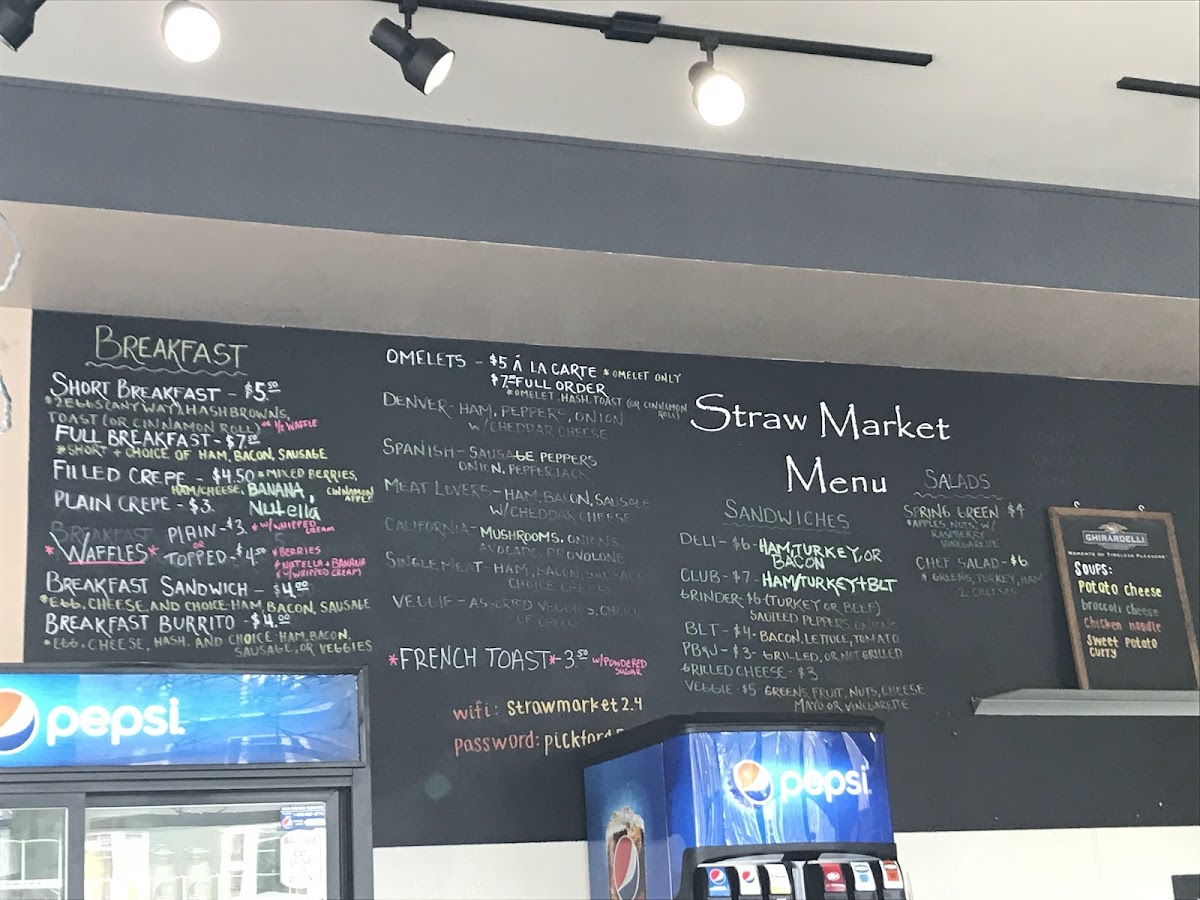 BREAKFAST
SHORT BREAKFAST - $5.50
*2 EGGS (ANY WAY), HASHBROWNS,
TOAST (OR CINNAMON ROLL) OR 1/2 WAFFLE
FULL BREAKFAST - $7.00
*SHORT + CHOICE OF HAM, BACON, SAUSAGE
FILLED CREPE - $4.50 *MIXED BERRIES,
HAM/CHEESE, BANANA, CINNAMON APPLE
PLAIN CREPE - $3. Nutella
BREAKFAST PLAIN - $3. *W/WHIPPED CREAM
*WAFFLES* OR
TOPPED - $4.50 *BERRIES
*NUTELLA + BANANA
W/WHIPPED CREAM
BREAKFAST SANDWICH - $4.00
*EGG, CHEESE, AND CHOICE HAM, BACON, SAUSAGE
BREAKFAST BURRITO - $4.00
*EGG, CHEESE, HASH, AND CHOICE HAM, BACON,
SAUSAGE, OR VEGGIES
OMELETS - $5 Á LA CARTE *OMELET ONLY
$7- FULL ORDER
*OMELET, HASH, TOAST (OR CINNAMON ROLL)
DENVER - HAM, PEPPERS, ONION
W/CHEDDAR CHEESE
SPANISH - SAUSAGE PEPPERS
ONION, PEPPERJACK
MEAT LOVERS - HAM, BACON, SAUSAGE
W/CHEDDAR CHEESE
CALIFORNIA - MUSHROOMS, ONIONS
AVOCADO, PROVOLONE
SINGLE MEAT - HAM, BACON, SAUSAGE
CHOICE CHEESE
VEGGIE - ASSORTED VEGGIES, CHOICE
OF CHEESE
*FRENCH TOAST* - 3.50 W/POWDERED
SUGAR
wifi: strawmarket2.4
password: pickford
Straw Market
Menu
SANDWICHES
DELI - $6 - HAM, TURKEY, OR
BACON
CLUB - $7 - HAM/TURKEY + BLT
GRINDER - $6 (TURKEY OR BEEF)
SAUTEED PEPPERS, ONIONS
BLT - $4 - BACON, LETTUCE, TOMATO
PB&J - $3 - GRILLED, OR NOT GRILLED
GRILLED CHEESE - $3
VEGGIE - $5 GREENS, FRUIT, NUTS, CHEESE
MAYO OR VINEGARETTE
SALADS
SPRING GREEN - $4
*APPLES, NUTS, W/
RASPBERRY
VINEGARETTE
CHEF SALAD - $6
* GREENS, TURKEY, HAM
2 CHEESES
GHIRARDELLI
MOMENTS OF TIMELESS PLEASURE
SOUPS:
Potato cheese
broccoli cheese
chicken noodle
Sweet Potato
curry
pepsi
pepsi